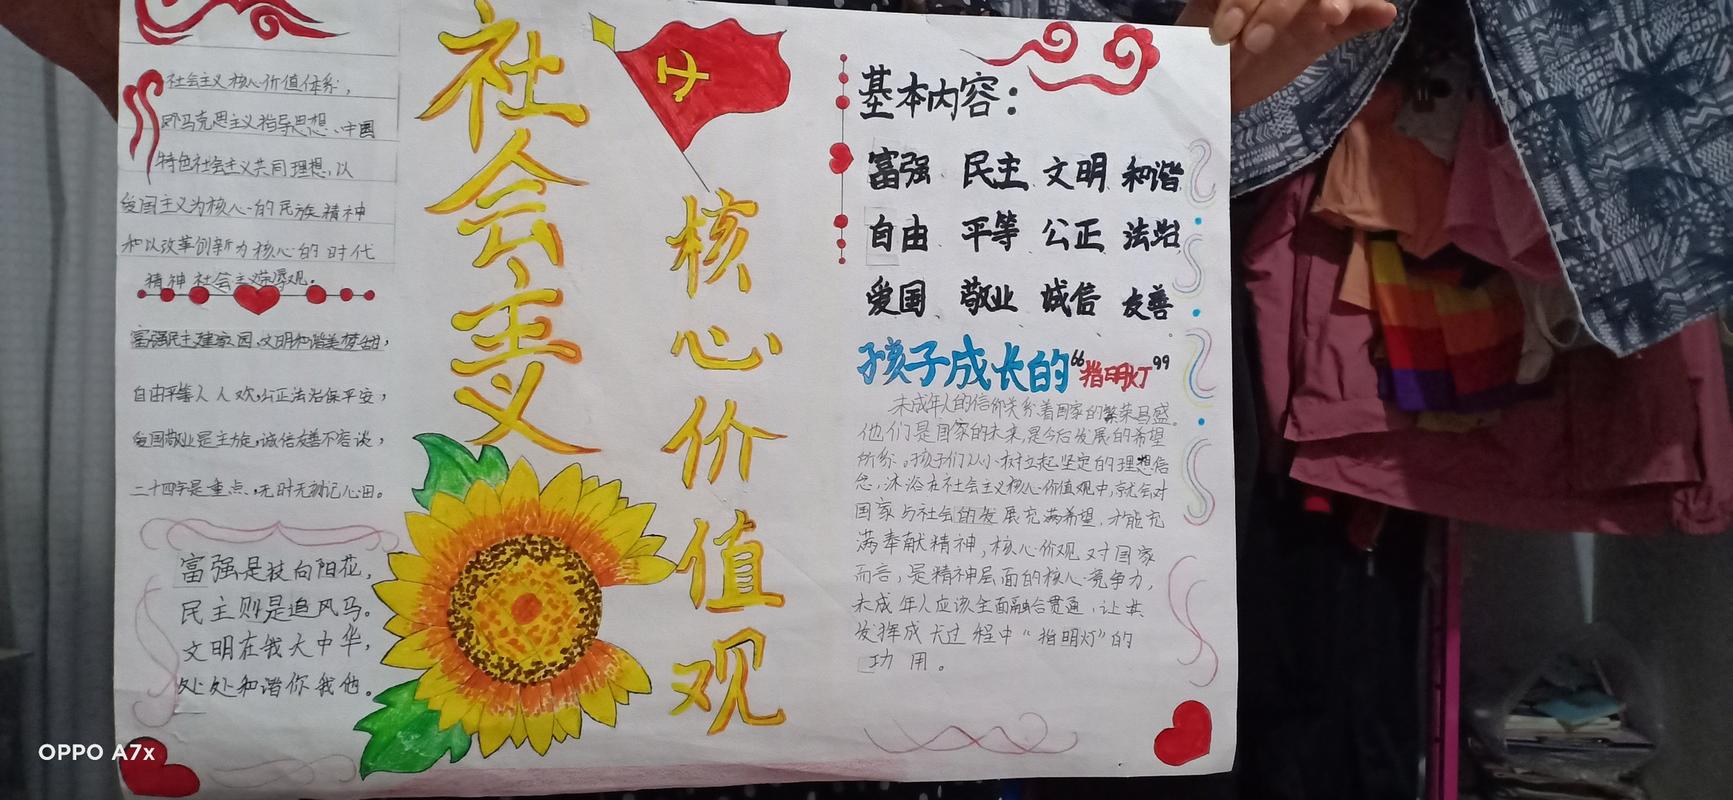 社会主义核心价值体系，
即马克思主义指导思想、中国
特色社会主义共同理想，以
爱国主义为核心的民族精神
和以改革创新为核心的时代
精神 社会主义荣辱观。
富强民主建家园，文明和谐美梦甜，
自由平等人人欢，公正法治保平安，
爱国敬业是主旋，诚信友善不容谈，
二十四字是重点，无时无刻记心田。
富强是技向阳花，
民主则是追风马。
文明在我大中华，
处处和谐你我他。
社会主义
核心价值观
基本内容：
富强 民主 文明 和谐
自由 平等 公正 法治
爱国 敬业 诚信 友善
孩子成长的“指明灯”
未成年人的信仰关系着国家的繁荣昌盛。
他们是国家的未来，是今后发展的希望
所系。孩子们从小树立起坚定的理想信
念，沐浴在社会主义核心价值观中，就会对
国家与社会的发展充满希望，才能充
满奉献精神，核心价观对国家
而言，是精神层面的核心竞争力，
未成年人应该全面融合贯通，让其
发挥成长过程中“指明灯”的
功用。
OPPO A7x